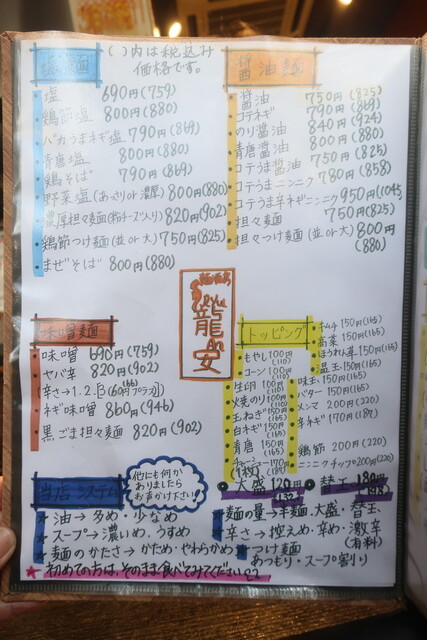 ( )内は税込み
価格です。
塩麺
塩 690円(759)
鶏節塩 800円(880)
バカうまネギ塩 790円(869)
青唐塩 800円(880)
鶏そば 790円(869)
野菜塩(あっさりor濃厚) 800円(880)
濃厚担々麺(粉チーズ入り) 820円(902)
鶏節つけ麺(並or大) 750円(825)
まぜそば 800円(880)
醤油麺
醤油 750円(825)
コテネギ 790円(869)
のり醤油 840円(924)
青唐醤油 800円(880)
コテうま醤油 750円(825)
コテうまニンニク 780円(858)
コテうま辛ネギニンニク 950円(1045)
担々麺 750円(825)
担々つけ麺(並or大) 800円
(880)
龍
安
味噌麺
味噌 690円(759)
ヤバ辛 820円(902)
(辛さ→1.2.3(60円プラス))
(66)
ネギ味噌 860円(946)
黒ごま担々麺 820円(902)
トッピング
もやし 100円(110)
コーン 100円(110)
生卵 100円(110)
焼のり 100円(110)
玉ねぎ 150円(165)
白ネギ 150円(165)
青唐 150円(165)
チャーシュー 170円
(1枚) (187)
キムチ 150円(165)
高菜 150円(165)
ほうれん草 150円(165)
温玉 150円(165)
味玉 150円(165)
バター 150円(165)
メンマ 200円(220)
辛ネギ 170円(187)
鶏節 200円(220)
ニンニクチップ 200円(220)
大盛 120円
(132)
替玉 180円
(198)
当店システム
他にも何か
ありましたら
お声かけ下さい!
油→多め・少なめ
スープ→濃いめ、うすめ
麺のかたさ→かため・やわらかめ
麺の量→半麺、大盛・替玉
辛さ→控えめ・辛め・激辛
(有料)
つけ麺
あつもり・スープ割り
★初めての方は、そのまま食べてみてください